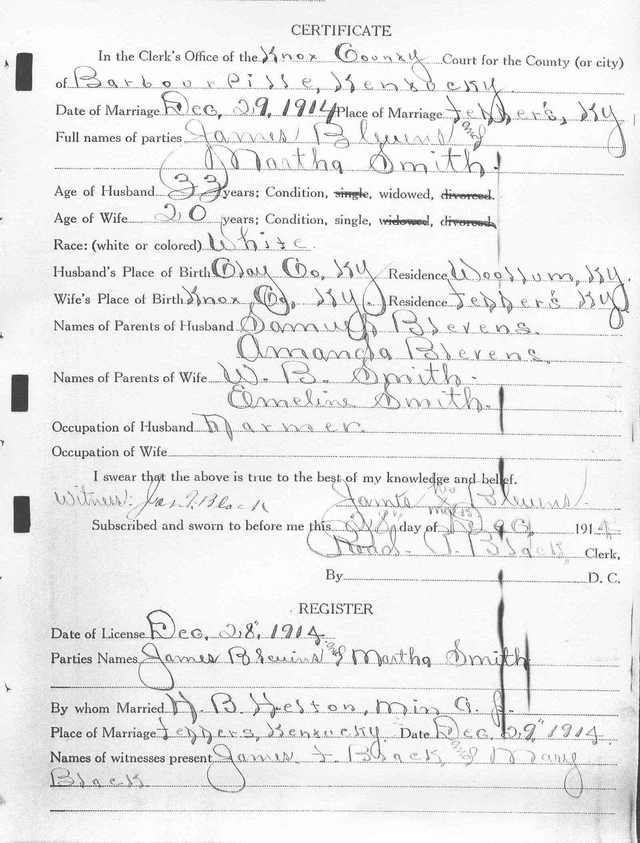 CERTIFICATE
In the Clerk's Office of the Knox County Court for the County (or city)
of Barbourville, Kentucky
Date of Marriage Dec, 29, 1914 Place of Marriage Jeffers, Ky
Full names of parties James Blevins and
Martha Smith.
Age of Husband 33 years; Condition, single, widowed, divorced.
Age of Wife 20 years; Condition, single, widowed, divorced.
Race: (white or colored) White.
Husband's Place of Birth Clay Co, Ky Residence Woollum, Ky.
Wife's Place of Birth Knox Co, Ky. Residence Jeffers Ky
Names of Parents of Husband Samuel Blevens.
Amanda Blevens
Names of Parents of Wife W. B. Smith.
Emeline Smith.
Occupation of Husband Farmer.
Occupation of Wife
I swear that the above is true to the best of my knowledge and belief.
Witness: Jas. F. Black James his X mark Blevins
Subscribed and sworn to before me this 28" day of Dec, 1914
Read. Black, Clerk,
By D. C.
REGISTER
Date of License Dec, 28" 1914
Parties Names James Blevins and Martha Smith
By whom Married H. B. Helton, Min G. J.
Place of Marriage Jeffers, Kentucky. Date Dec, 29" 1914.
Names of witnesses present James F. Black and Mary
Black